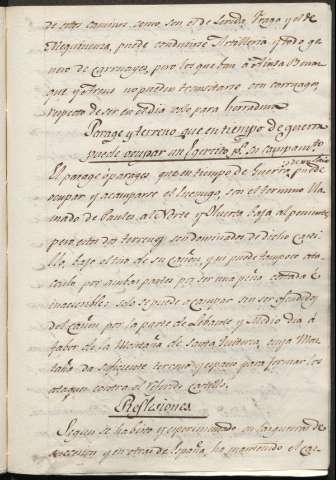 de estos caminos como son el de Lerida, Fraga y el de
Mequinenza, puede conducirse Artilleria, y todo ge
nero de carruages, pero los que ban a Ainsa Benas
que y otros no pueden transitarse con carruages,
respecto de ser en el dia solo para herradura
Parage y terreno que en tiempo de guerra
puede ocupar un Exercito p.ª su campam.to
El parage ò parages que en tiempo de Guerra puede
ocupar y acamparse el Enemigo, son el termino lla
mado de Paules, al Norte y Huerta baja al poniente
pero estos dos terrenos son dominados de dicho Casti
llo, bajo el tiro de su Cañon, que puede tampoco ata
carlo por ambas partes por ser una peña cortada è
inacesible: solo se puede acampar sin ser ofendidos
del Cañon por la parte de Lebante y Medio dia à
fabor de la Montaña de Santa Quiteria, cuya Mon
taña da suficiente terreno y espacio para formar los
ataques contra el referido Castillo.
Reflexiones
Segun se ha visto y experimentado en las guerras de
succesion y en otras de España, ha mantenido el Cas-